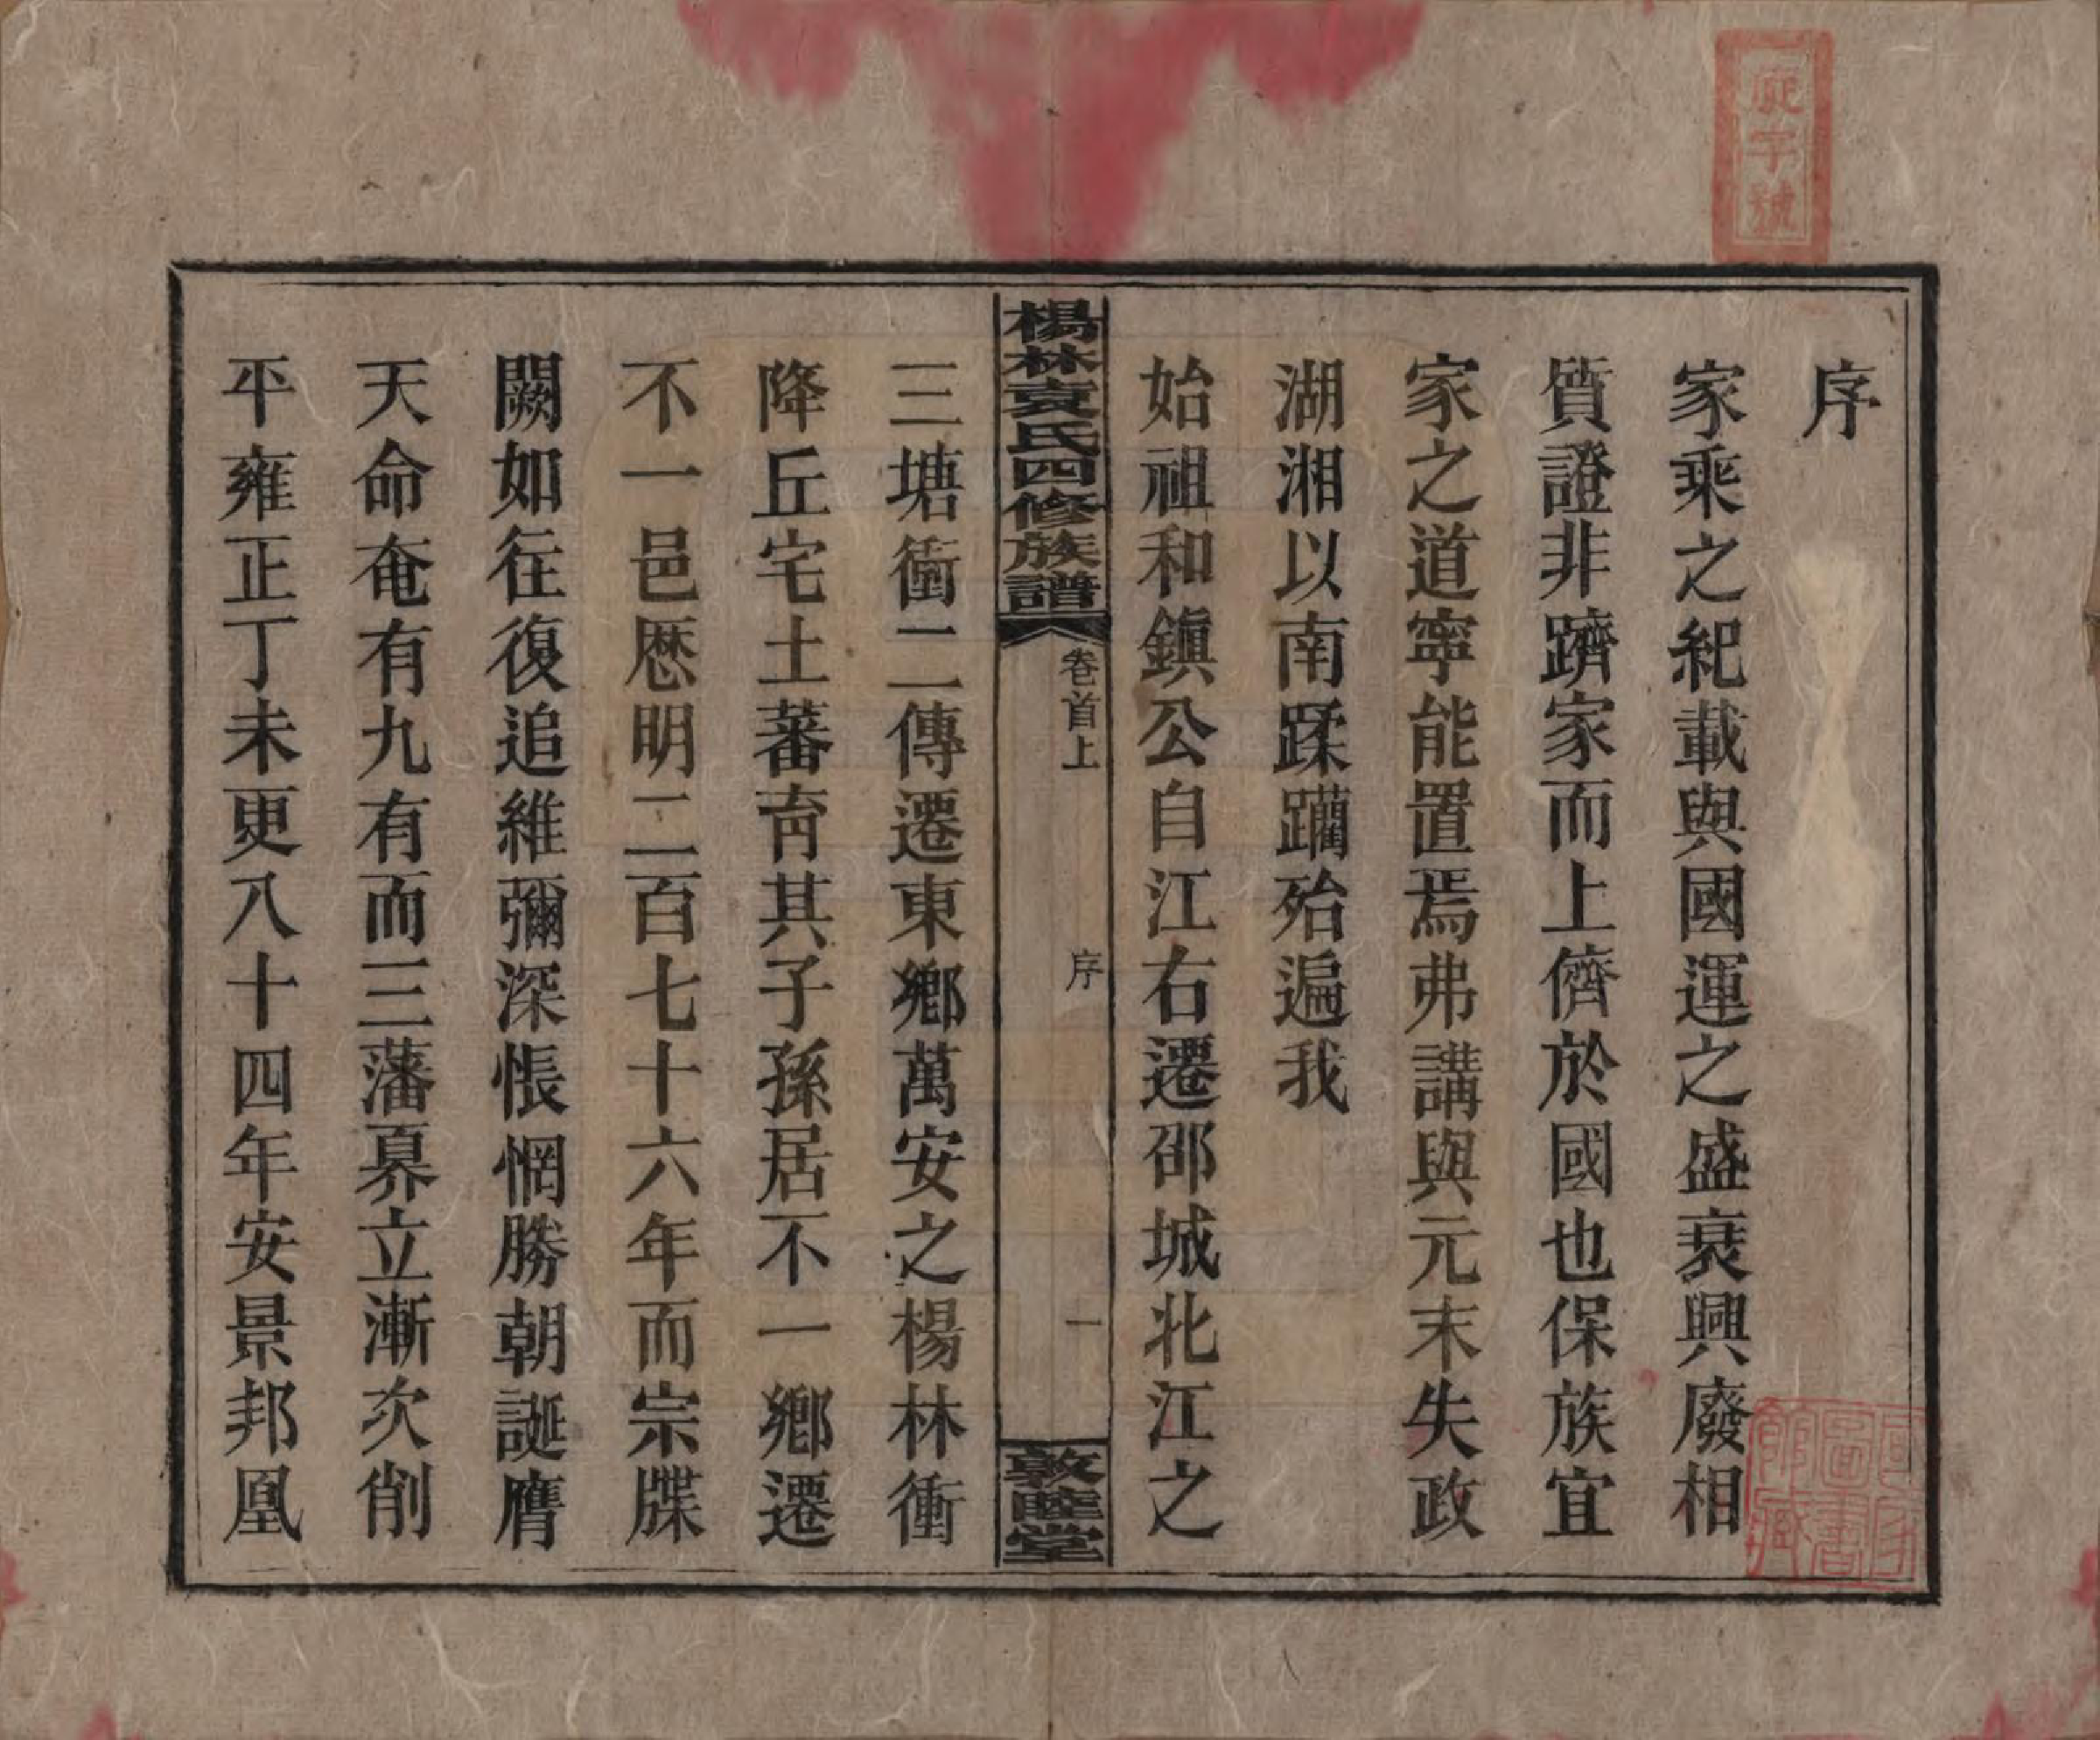 庭字號
序
家乘之紀載與國運之盛衰興廢相
質證非躋家而上儕於國也保族宜
家之道寧能置焉弗講與元末失政
湖湘以南蹂躪殆遍我
始祖和鎭公自江右遷邵城北江之
楊林袁氏四修族譜
卷首上
序
一
敦睦堂
三塘衝二傳遷東鄉萬安之楊林衝
降丘宅土蕃育其子孫居不一鄉遷
不一邑歷明二百七十六年而宗牒
闕如往復追維彌深悵惘勝朝誕膺
天命奄有九有而三藩奡立漸次削
平雍正丁未更八十四年安景邦凰
圖書
館藏